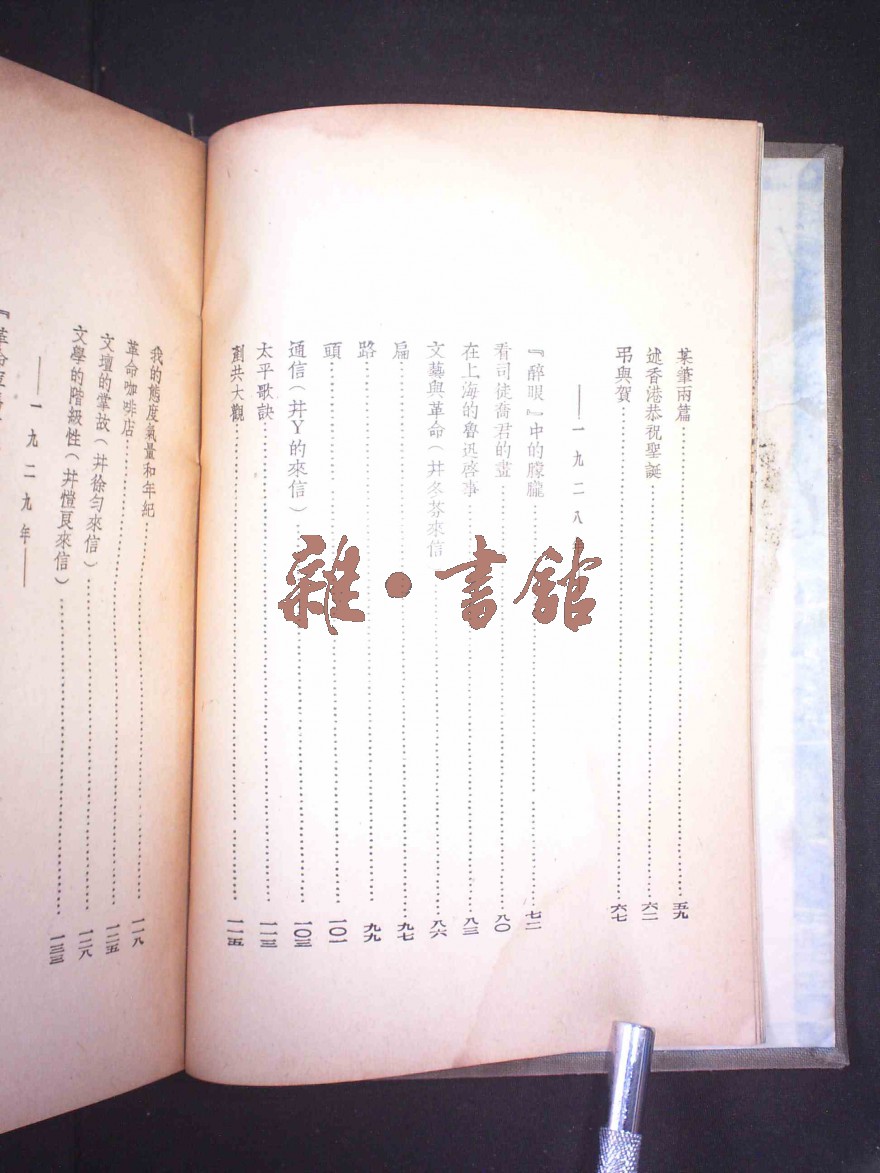 某筆兩篇……五九
述香港恭祝聖誕……六二
弔與賀……六七
——一九二八
『醉眼』中的朦朧……七二
看司徒喬君的畫……八〇
在上海的魯迅啓事……八三
文藝與革命(幷冬芬來信……八六
扁……九七
路……九九
頭……一〇一
通信(幷Y的來信)……一〇三
太平歌訣……一一三
剷共大觀……一一五
我的態度氣量和年紀……一一八
革命咖啡店……一二五
文壇的掌故(幷徐勻來信)……一二八
文學的階級性(幷愷良來信)……一三三
——一九二九年——
『革命軍馬
雜·書館